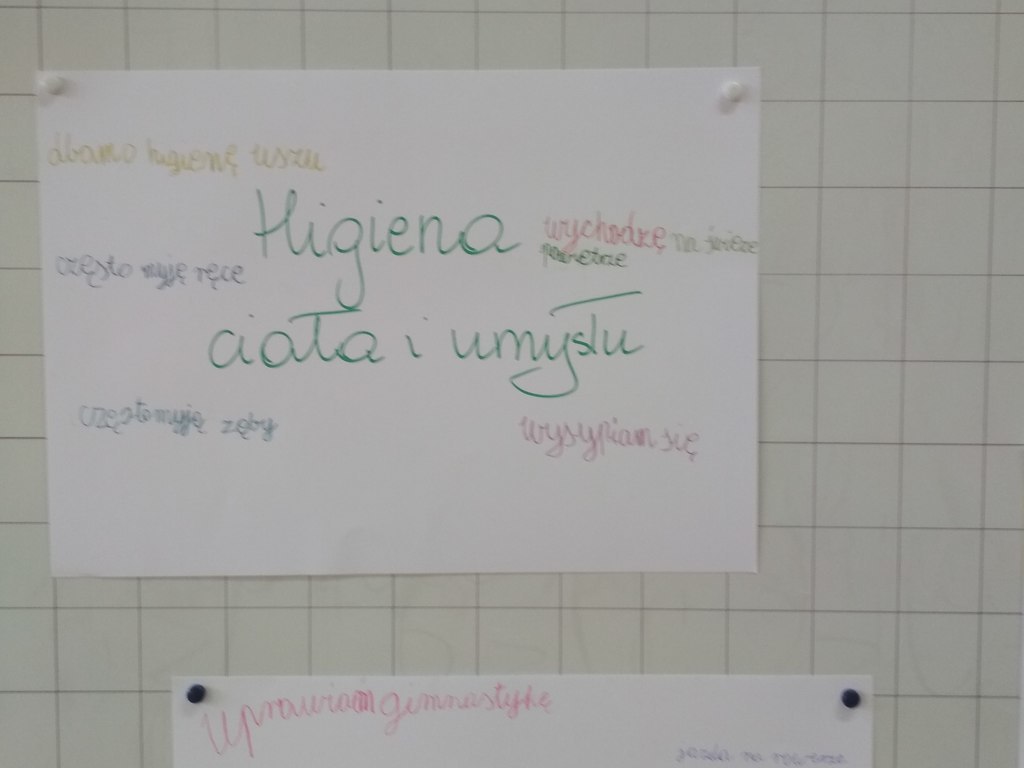 dbamo higienę uszu
Higiena
wychodzę na świeże
powietrze
często myję ręce
ciała i umysłu
częstomyję zęby
wysypiam się
Uprawiam gimnastykę
jazda na rowerze